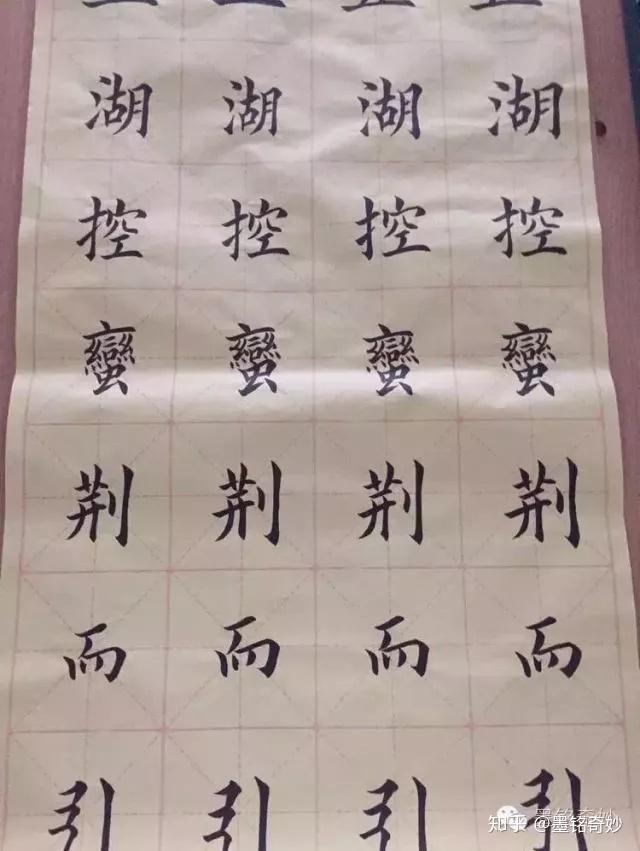 湖 湖 湖 湖
控 控 控 控
蠻 蠻 蠻 蠻
荆 荆 荆 荆
而 而 而 而
引 引 引 引
墨铭奇妙
知乎 @墨铭奇妙